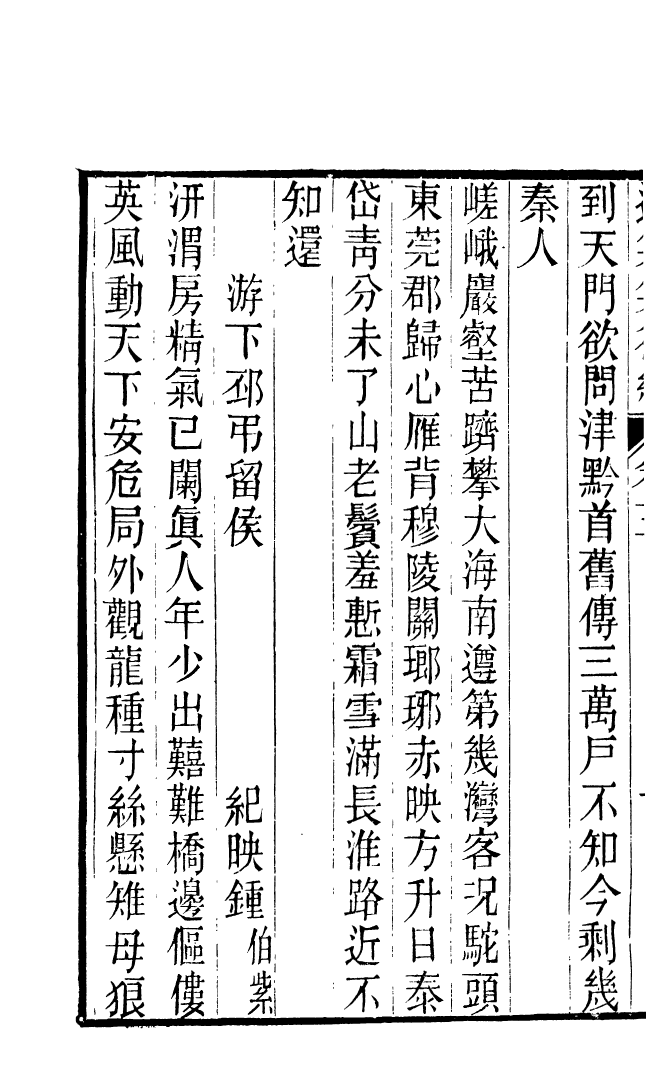 到天門欲問津黔首舊傳三萬戶不知今剩幾
秦人
嵯峨巖壑苦躋攀大海南遵第幾灣客況駝頭
東莞郡歸心雁背穆陵關瑯琊赤映方升日泰
岱靑分未了山老鬢羞慙霜雪滿長淮路近不
知還
游下邳弔留侯 紀映鍾伯紫
汧渭房精氣已闌眞人年少出囏難橋邊傴僂
英風動天下安危局外觀龍種寸絲懸雉母狼